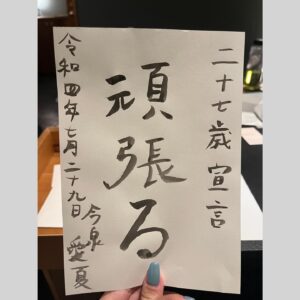 二十七歳宣言
頑張る
令和四年七月二十九日
今泉愛夏